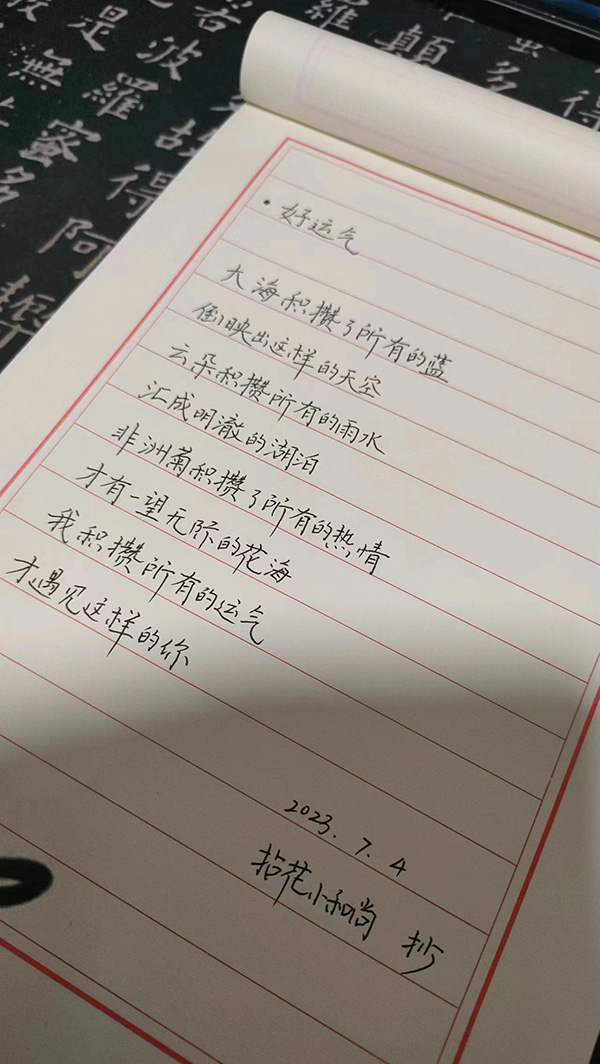 ·好运气
大海积攒了所有的蓝
倒映出这样的天空
云朵积攒所有的雨水
汇成明澈的湖泊
非洲菊积攒了所有的热情
才有一望无际的花海
我积攒所有的运气
才遇见这样的你
2023.7.4
拈花小和尚 抄
若波
是羅
無蜜多
故得阿
羅顛
多得